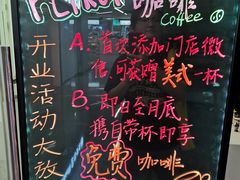 咖啡
Coffee
开业活动大放
A. 首次添加门店微
信,可获赠美式一杯
B. 即日至月底
携自带杯即享
免费咖啡